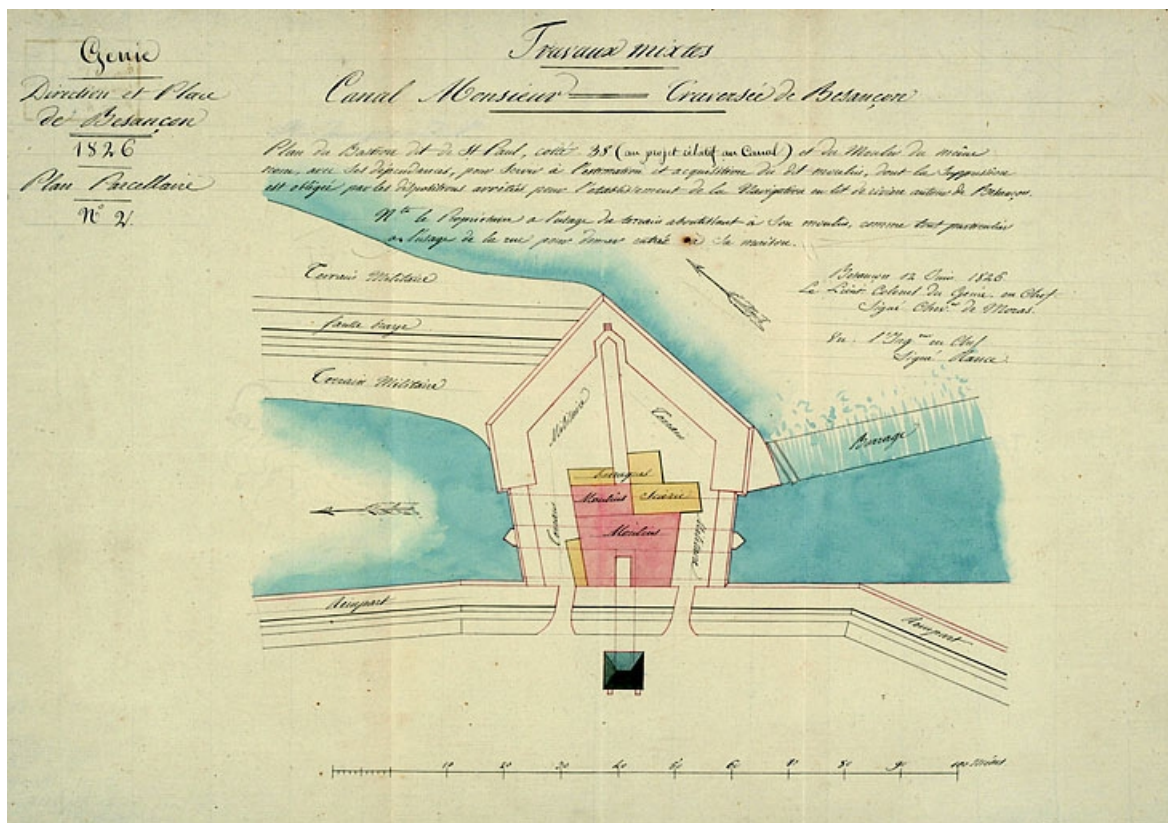 Genie
Direction et Place
de Besançon
1826
Plan Parcellaire
N° 2.
Travaux mixtes
Canal Monsieur — Traversée de Besançon
Plan du Bastion dit de St Paul, coté 38 (au projet rélatif au Canal) et du Moulin du même
nom, avec ses dépendances, pour servir à l'estimation et acquisition du dit moulin, dont la suppression
est obligée par les dispositions arrêtées pour l'établissement de la Navigation en lit de rivière autour de Besançon.
N.ta le Propriétaire a l'usage du terrain aboutissant à son moulin, comme tout particulier
a l'usage de la rue pour donner entrée à sa maison.
Besançon 12 Juin 1826
Le Lieut. Colonel du Genie en Chef
Signé Chev. de Moras.
Vu. l'Ing. en Chef
Signé
Terrain Militaire
fausse braye
Terrain Militaire
Militaire
Terrain
Barrage
Moulins
Scierie
Moulins
Terrain
Militaire
Rempart
Rempart
10 20 30 40 50 60 70 80 90 100 mètres